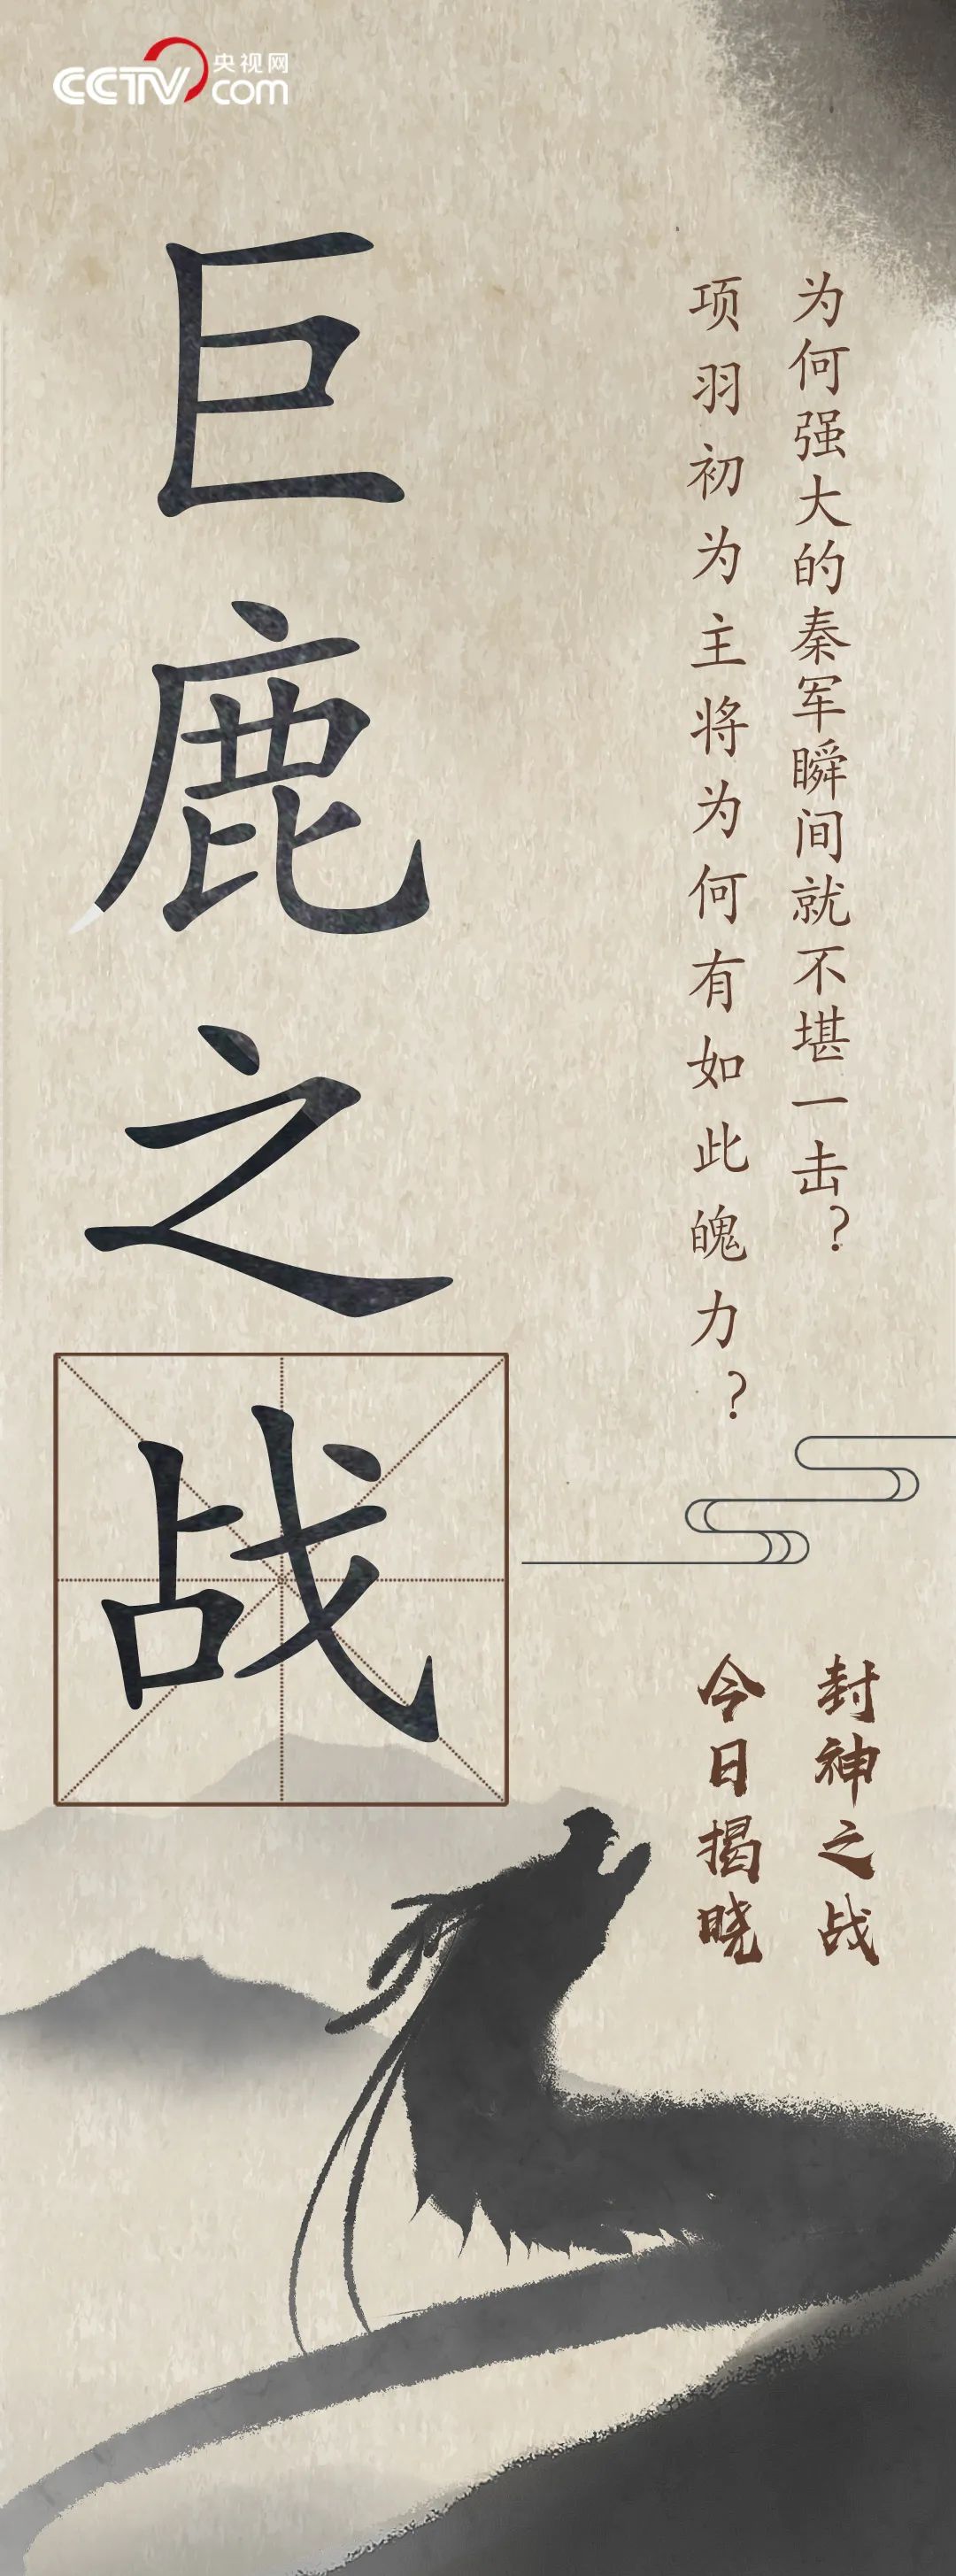 CCTV.com 央视网
巨鹿之战
为何强大的秦军瞬间就不堪一击？
项羽初为主将为何有如此魄力？
封神之战
今日揭晓